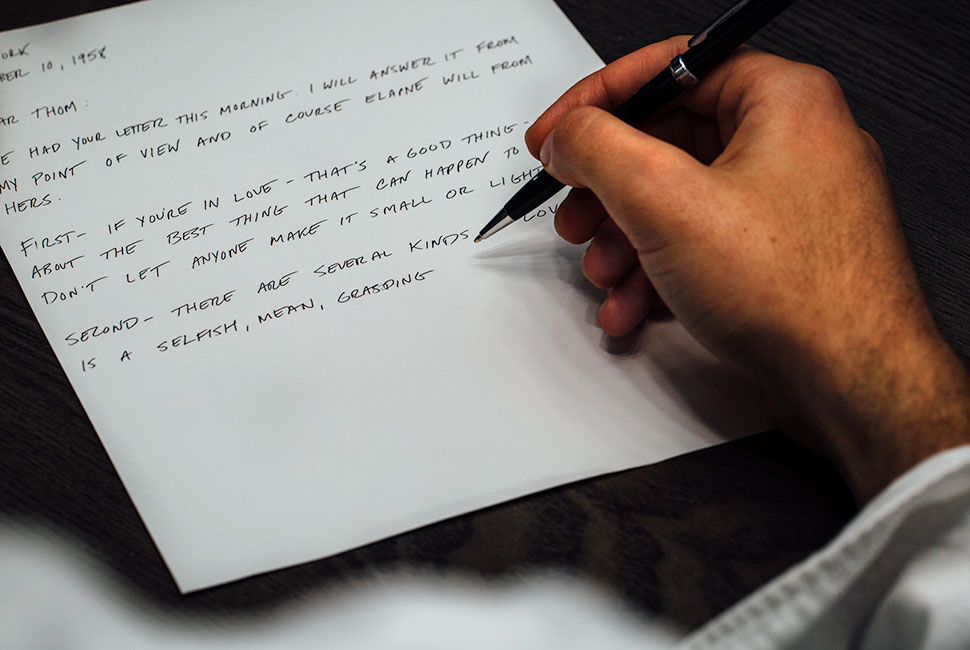 ORK
BER 10, 1958
AR THOM:
E HAD YOUR LETTER THIS MORNING. I WILL ANSWER IT FROM
MY POINT OF VIEW AND OF COURSE ELAINE WILL FROM
HERS.
FIRST - IF YOU'RE IN LOVE - THAT'S A GOOD THING -
ABOUT THE BEST THING THAT CAN HAPPEN TO
DON'T LET ANYONE MAKE IT SMALL OR LIGHT
SECOND - THERE ARE SEVERAL KINDS LOV
IS A SELFISH, MEAN, GRASPING